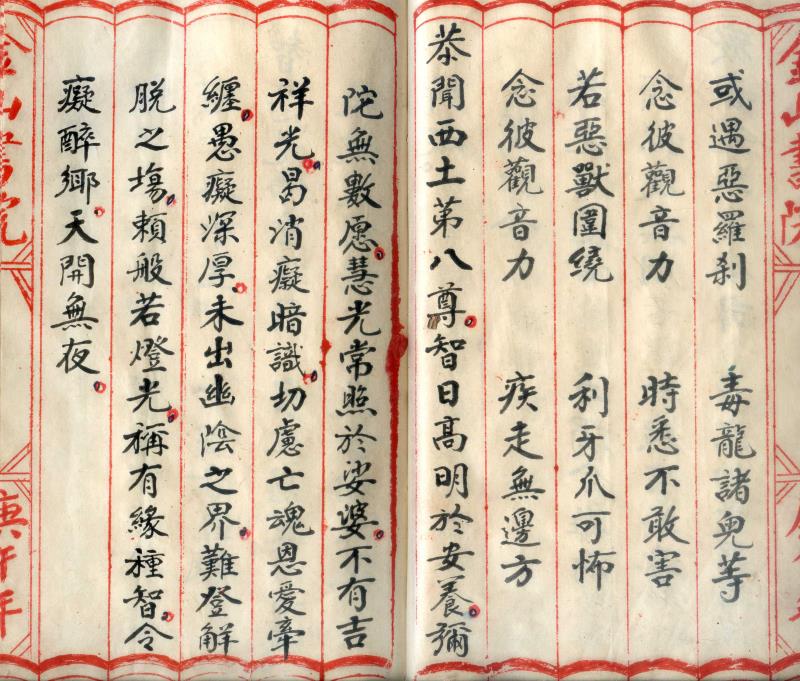 或遇惡羅刹 毒龍諸鬼等
念彼觀音力 時悉不敢害
若惡獸圍繞 利牙爪可怖
念彼觀音力 疾走無邊方
恭聞西土第八尊智日高明於安養彌
陀無數愿慧光常照於娑婆不有吉
祥光曷消癡暗識切慮亡魂恩愛牽
纏愚癡深厚未出幽陰之界難登解
脱之塲頼般若燈光稱有緣種智令
癡醉鄉天開無夜
金山書院
庚午年